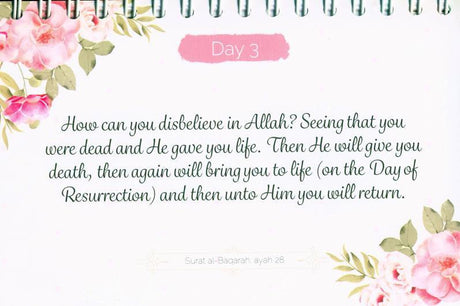 Day 3
How can you disbelieve in Allah? Seeing that you
were dead and He gave you life. Then He will give you
death, then again will bring you to life (on the Day of
Resurrection) and then unto Him you will return.
Surat al-Baqarah, ayah 28